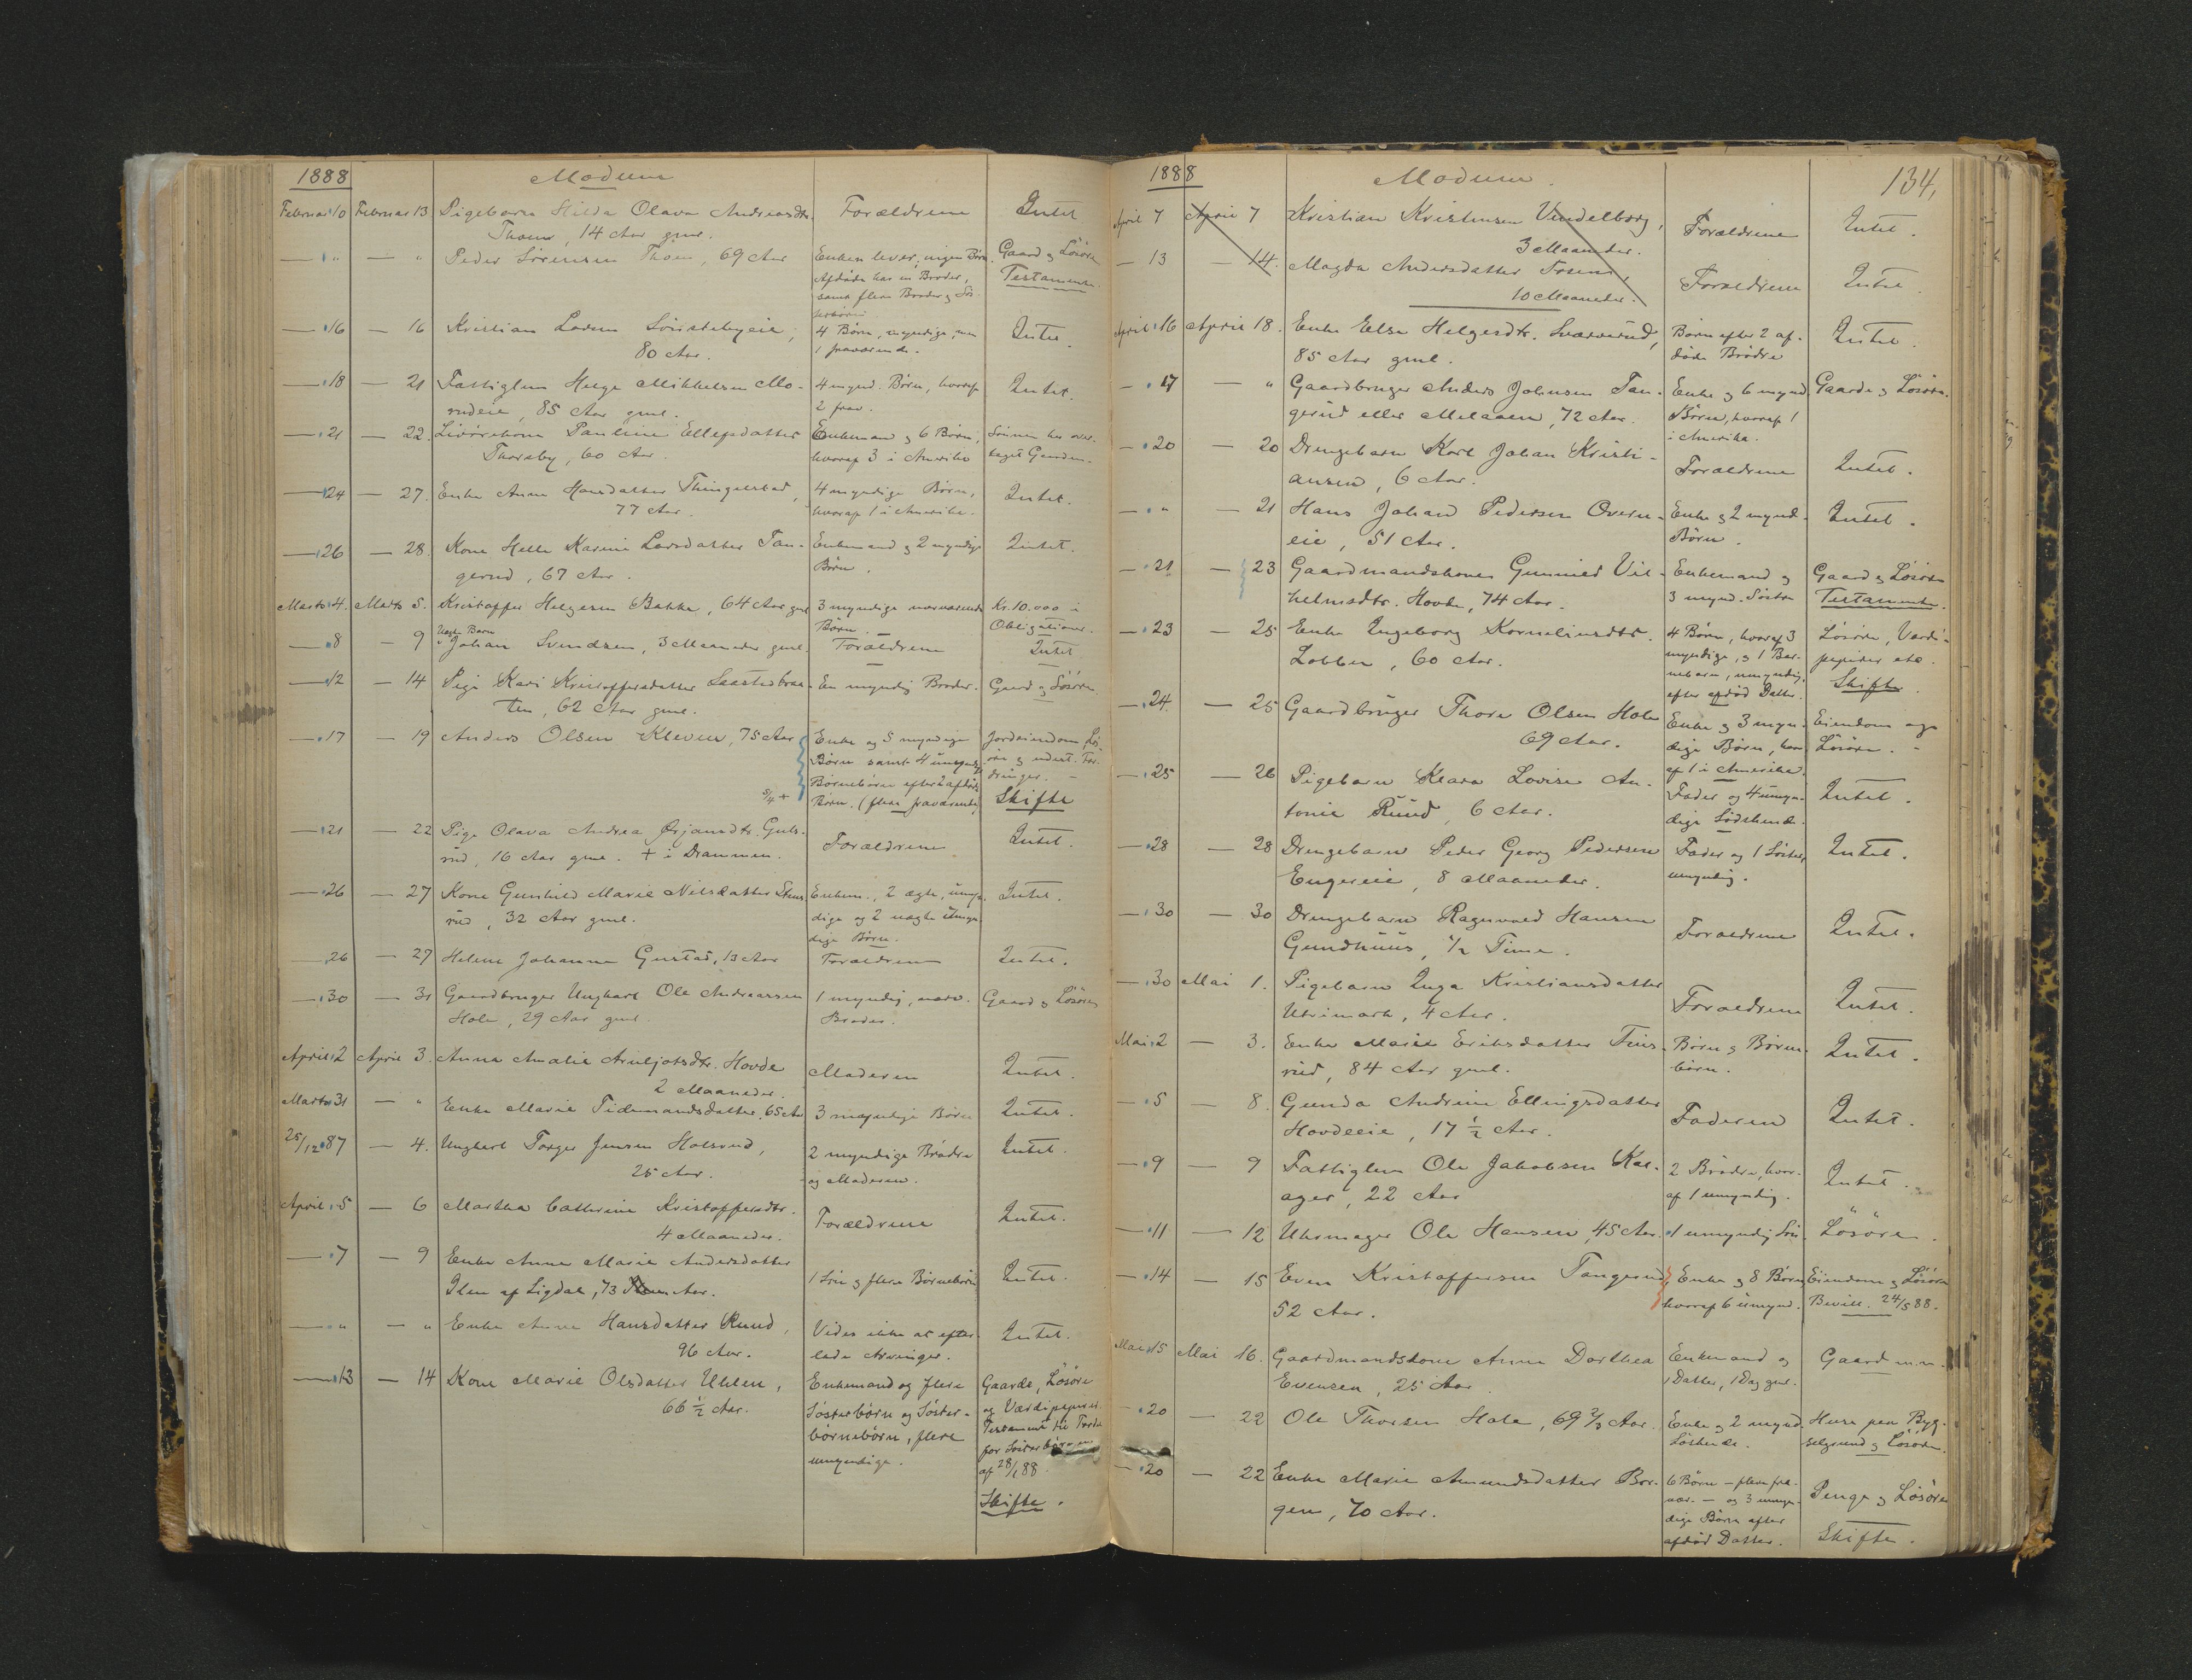 1888 Modum
Februar 10 Februar 13 Pigebarn Hilda Olava Andreasdtr. Forældrene Intet
Thoen, 14 Aar gml.
— " — " Peder Sörensen Thoen, 69 Aar Enken lever, ingen Börn. Gaard og Lösöre
Afdöde har en Broder, Testamente.
samt flere Broder og Sös-
— 16 — 16 Kristian Larsen 4 Börn, myndige, men Intet.
80 Aar. 1 fraværende.
— 18 — 21 Fattiglem Helge Mikkelsen Mo- 4 mynd. Börn, hvoraf Intet.
rudeie, 85 Aar gml. 2 frav.
— 21 — 22. Pauline Ellefsdatter Enkemand og 6 Börn, Sönnen har over-
Thorsby, 60 Aar. hvoraf 3 i Amerika taget Gaarden.
— 24 — 27. Enke Anne Hansdatter Thingelstad, 4 myndige Börn, Intet.
77 Aar. hvoraf 1 i Amerika.
— 26 — 28. Kone Helle Karine Larsdatter Tan- Enkemand og 2 myndige Intet.
gerud, 67 Aar. Börn.
Marts 4. Marts 5. Kristoffer Helgesen Bakke, 64 Aar gml. 3 myndige nærværende Kr. 10.000 i
Börn. Obligationer.
Uægte Barn
— 8 — 9 Johan Svendsen, 3 Maaneder gml. Forældrene Intet
— 12 — 14 Pige Kari Kristoffersdatter En myndig Broder. Gaard og Lösöre
ten, 62 Aar gml.
— 17 — 19 Anders Olsen Kleven, 75 Aar Enke og 5 myndige Jordeiendom, Lös-
Börn samt 4 umynd. öre og udest. For-
Börnebörn efter 2 afdöde dringer.
5/4 + Börn. (flere fraværende) Skifte
— 21 — 22 Pige Olava Andrea Ørjansdtr. Guls- Forældrene Intet.
rud, 16 Aar gml. + i Drammen.
— 26 — 27 Kone Gunhild Marie Nilsdatter Stens- Enkem., 2 ægte, umyn- Intet.
rud, 32 Aar gml. dige og 2 uægte umyn-
dige Börn.
— 26 — 27 Helene Johanne Gustad, 13 Aar Forældrene Intet.
— 30 — 31 Gaardbruger Ungkarl Ole Andreassen 1 myndig, nærv. Gaard og Lösöre
Hole, 29 Aar gml. Broder.
April 2 April 3. Anna Amalie Arnljotsdtr. Hovde Moderen Intet.
2 Maaneder.
Marts 31 — " Enke Marie Tidemandsdatter, 65 Aar 3 myndige Börn Intet.
25/12 87 — 4. Ungkarl Torger Jensen Holsrud, 2 myndige Brödre Intet.
25 Aar. og Moderen.
April 5 — 6 Martha Cathrine Kristoffersdtr. Forældrene Intet.
4 Maaneder.
— 7 — 9 Enke Anne Marie Andersdatter 1 Sön og flere Börnebörn Intet.
Ilen af Sigdal, 73 Aar.
— " — " Enke Anne Hansdatter Ruud, Vides ikke at efter- Intet.
96 Aar. lade Arvinger.
— 13 — 14 Kone Marie Olsdatter Uhlen, Enkemand og flere Gaarde, Lösöre
66 ½ Aar. Sösterbörn og Söster- og Værdipapirer.
börnebörn, flere Testament til Fordel
umyndige. for Sösterbörnene
af 28/1 88.
Skifte.
1888 Modum. 134,
April 7 April 7 Kristian Kristensen Vendelborg, Forældrene Intet.
3 Maaneder.
— 13 — 14. Magda Andersdatter Forældrene Intet.
10 Maaneder.
April 16 April 18. Enke Else Helgesdtr. Börn efter 2 af- Intet.
85 Aar gml. döde Brödre
— 17 — " Gaardbruger Anders Johnsen Tan- Enke og 6 mynd. Gaarde og Lösöre.
gerud eller Melaaen, 72 Aar. Börn, hvoraf 1
i Amerika.
— 20 20 Drengebarn Karl Johan Kristi- Forældrene Intet.
ansen, 6 Aar.
— " — 21 Hans Johan Pedersen Overn- Enke og 2 mynd. Intet.
eie, 51 Aar. Börn.
— 21 — 23 Gaardmandskone Gunnild Vil- Enkemand og Gaard og Lösöre
helmsdtr. Hovde, 74 Aar. 3 mynd. Söstre Testamente.
— 23 — 25 Enke Ingeborg Korneliusdtr. 4 Börn, hvoraf 3 Lösöre, Værdi-
Lobben, 60 Aar. myndige, og 1 Bar- papirer etc.
nebarn, umyndig, Skifte.
efter afdöd Datter.
— 24. — 25 Gaardbruger Thore Olsen Hole Enke og 3 myn- Eiendom og
69 Aar. dige Börn, hvor- Lösöre.
af 1 i Amerika.
— 25 — 26 Pigebarn Klara Lovise An- Fader og 4 umyn- Intet.
tonie Ruud, 6 Aar. dige Södskende.
— 28 — 28 Drengebarn Peder Georg Pedersen Fader og 1 Söster, Intet.
Engereie, 8 Maaneder. umyndig.
— 30 — 30 Drengebarn Ragnvald Hansen Forældrene Intet.
Gundhuus, ½ Time.
— 30 Mai 1. Pigebarn Inga Kristiansdatter Forældrene Intet.
Utvimark, 4 Aar.
Mai 2 — 3. Enke Marie Eriksdatter Börn og Börne- Intet.
rud, 84 Aar gml. börn.
— 5 — 8. Gunda Andrine Ellingsdatter Faderen Intet.
Hovdeeie, 17 ½ Aar.
— 9 — 9 Fattiglem Ole Jakobsen Kal- 2 Brödre, hvor- Intet.
ager, 22 Aar af 1 umyndig.
— 11 — 12 Uhrmager Ole Hansen, 45 Aar. 1 umyndig Sön Lösöre.
— 14 — 15 Even Kristoffersen Tangerud Enke og 8 Börn Eiendom og Lösöre
52 Aar. hvoraf 6 umynd. Bevill. 24/5 88.
Mai 15 Mai 16. Gaardmandskone Anne Dorthea Enkemand og Gaard m.m.
Evensen, 25 Aar. 1 Datter, 1 Dag gml.
— 20 — 22 Ole Thorsen Hole, 69 ⅔ Aar. Enke og 2 mynd. Huse paa Byg-
Söskende. selgrund og Lösöre.
— 20 — 22 Enke Marie Amundsdatter Bor- 6 Börn — flere fra- Penge og Lösöre
gen, 70 Aar. vær. — og 3 umyn-
dige Börn efter
afdöd Datter. Skifte.